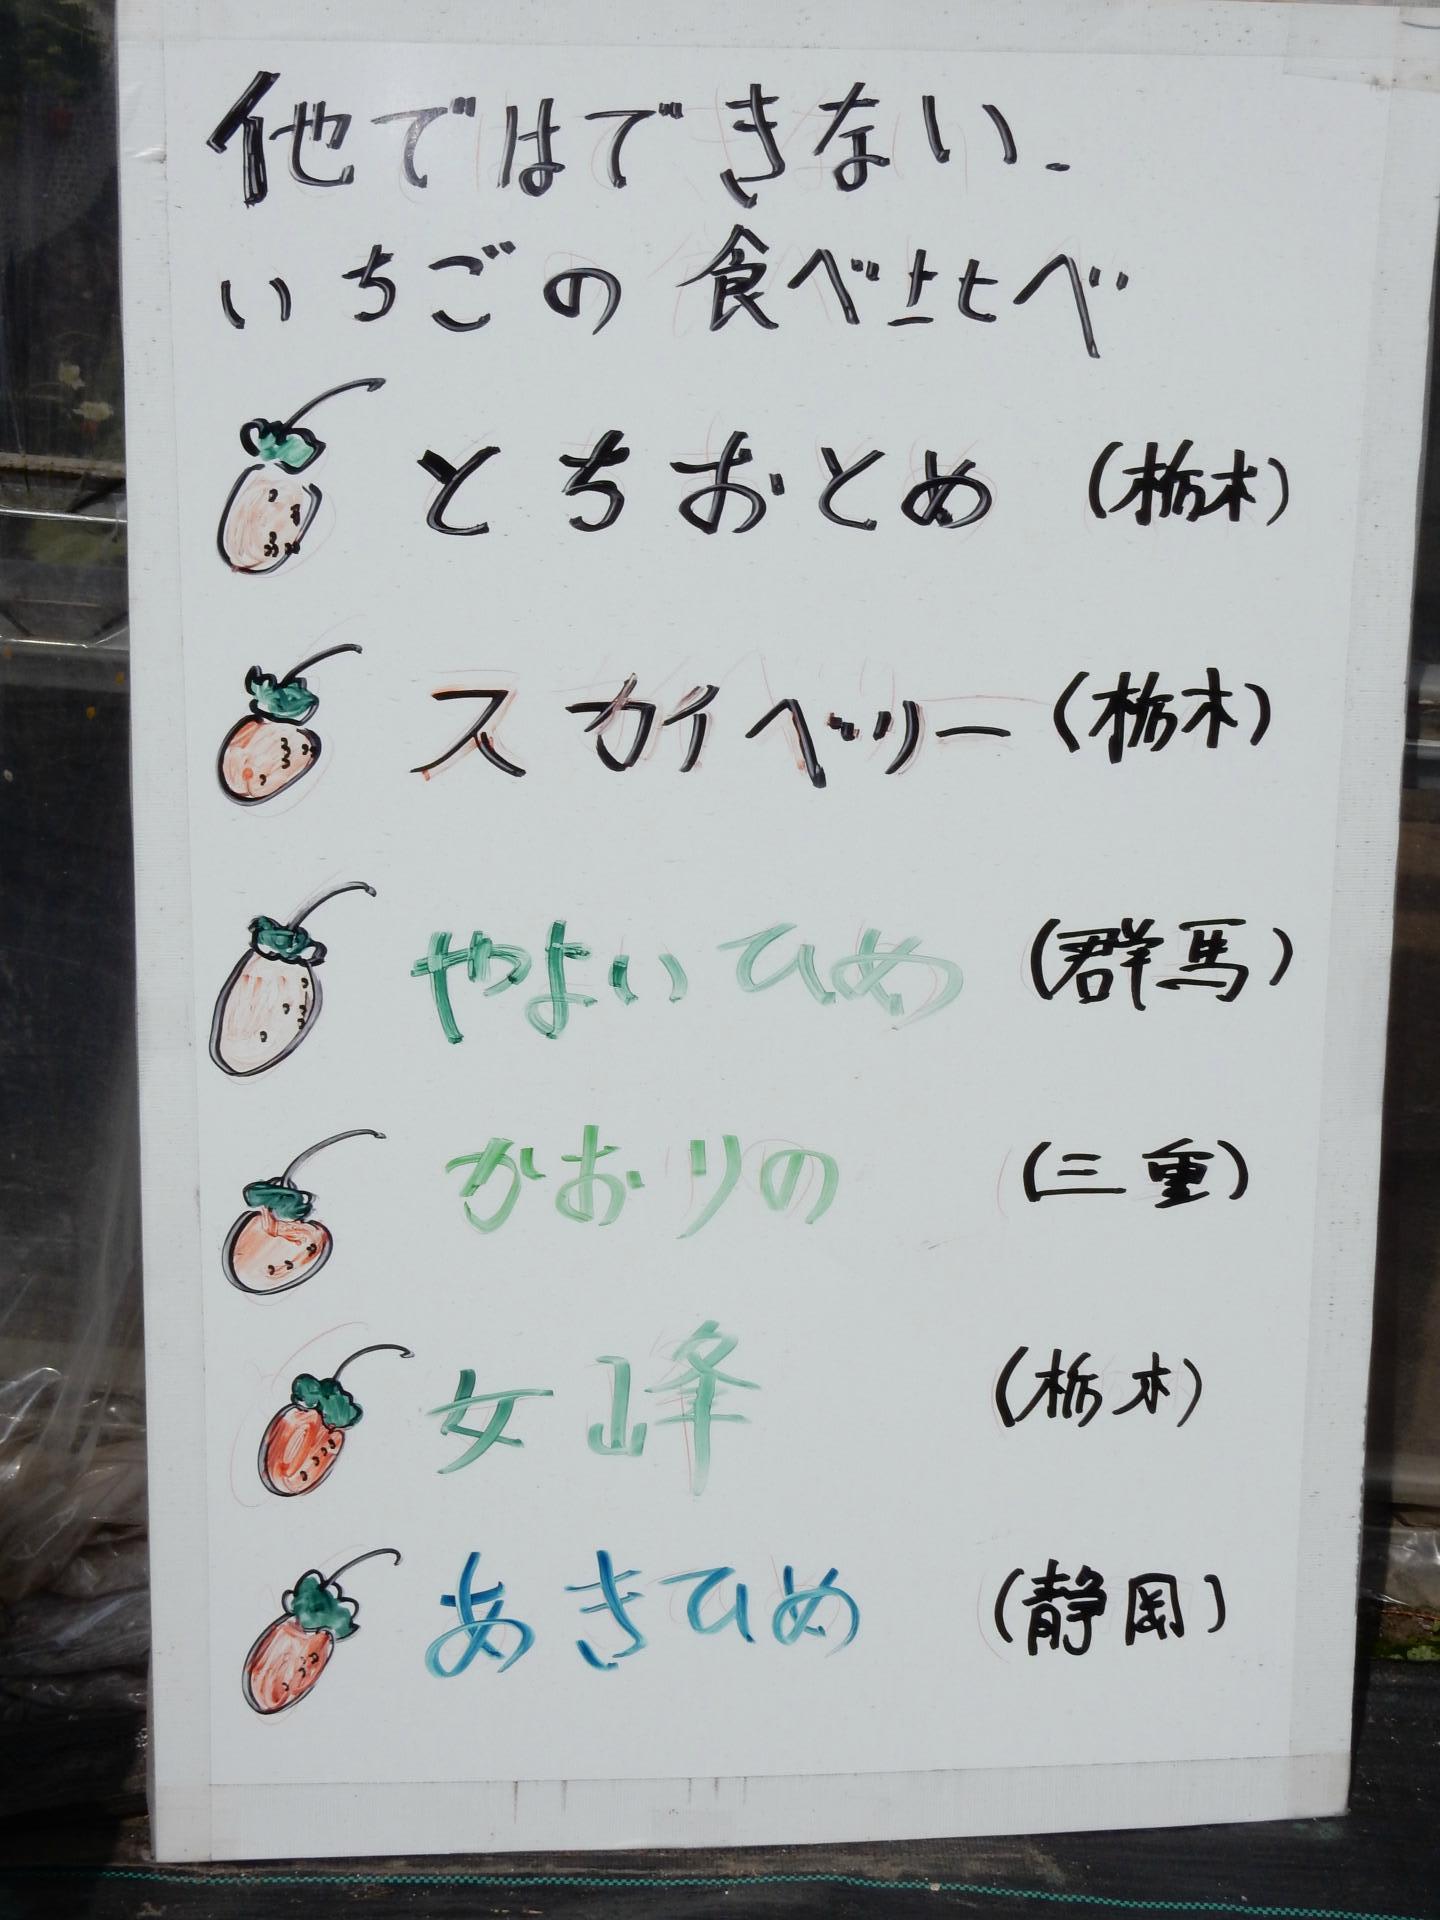 他ではできない
いちごの食べ比べ
とちおとめ (栃木)
スカイベリー (栃木)
やよいひめ (群馬)
かおりの (三重)
女峰 (栃木)
あきひめ (静岡)